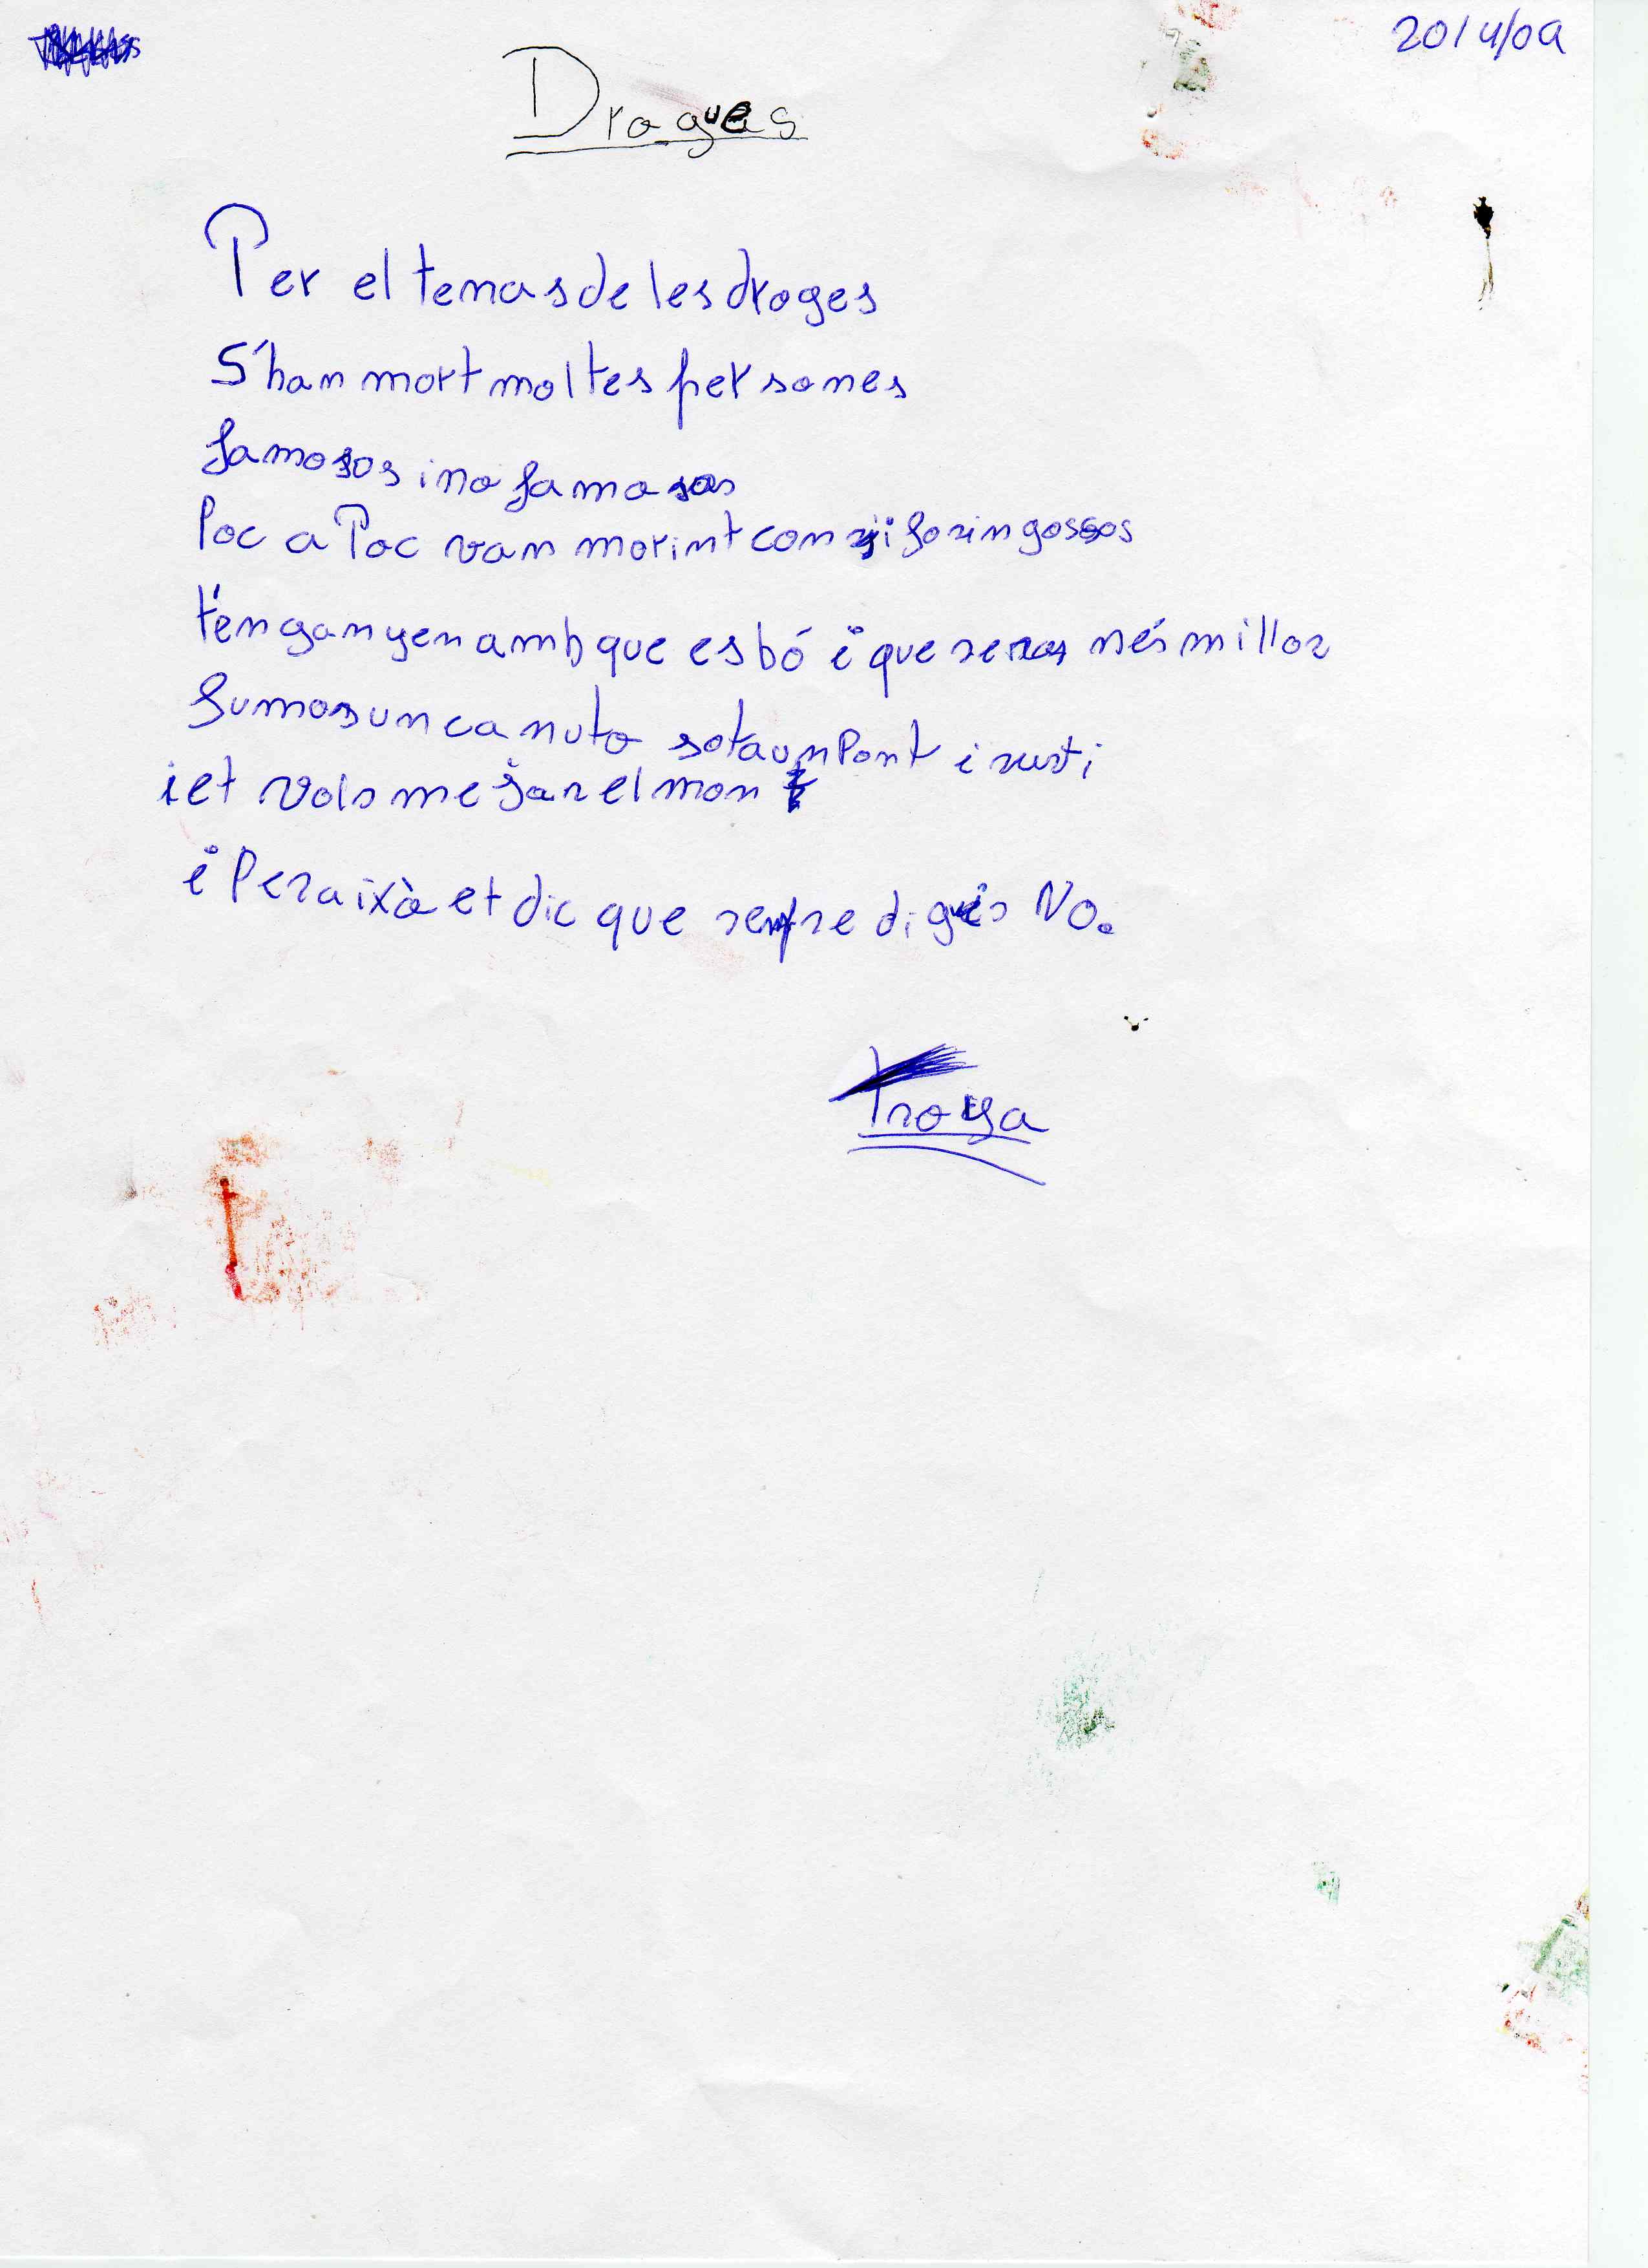 2014/09
Drogues
Per el temas de les droges
S'han mort moltes persones
famosos i no famosos
Poc a Poc van morint com si fosin gossos
t'enganyen amb que es bó i que seras més millor
fumas un canuto sota un Pont i
i et vols mejar el mon
i Per aixà et dic que sempre diguis No.
Troya